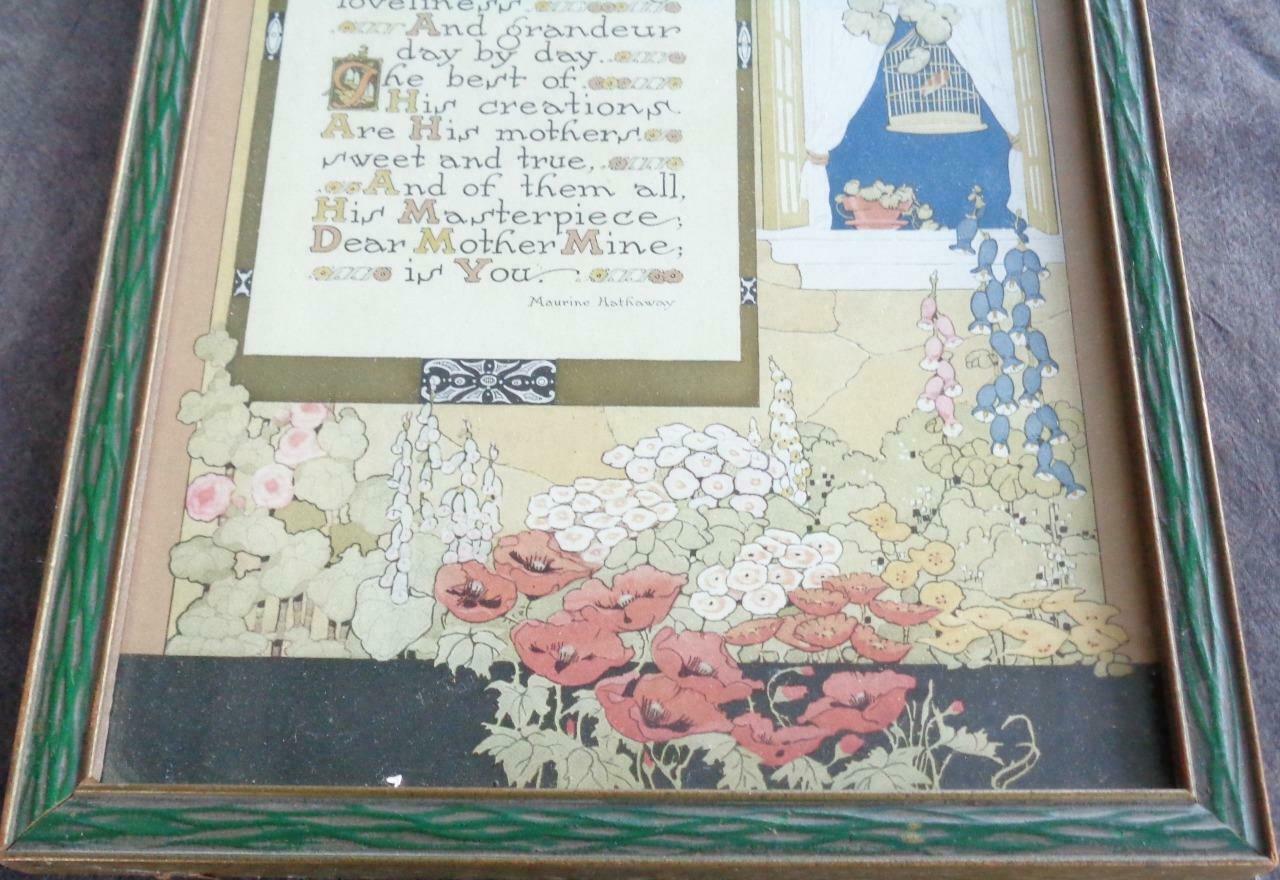 loveliness.
And grandeur
day by day.
The best of
His creations
Are His mothers
sweet and true,
And of them all,
His Masterpiece,
Dear Mother Mine,
is You.
Maurine Hathaway